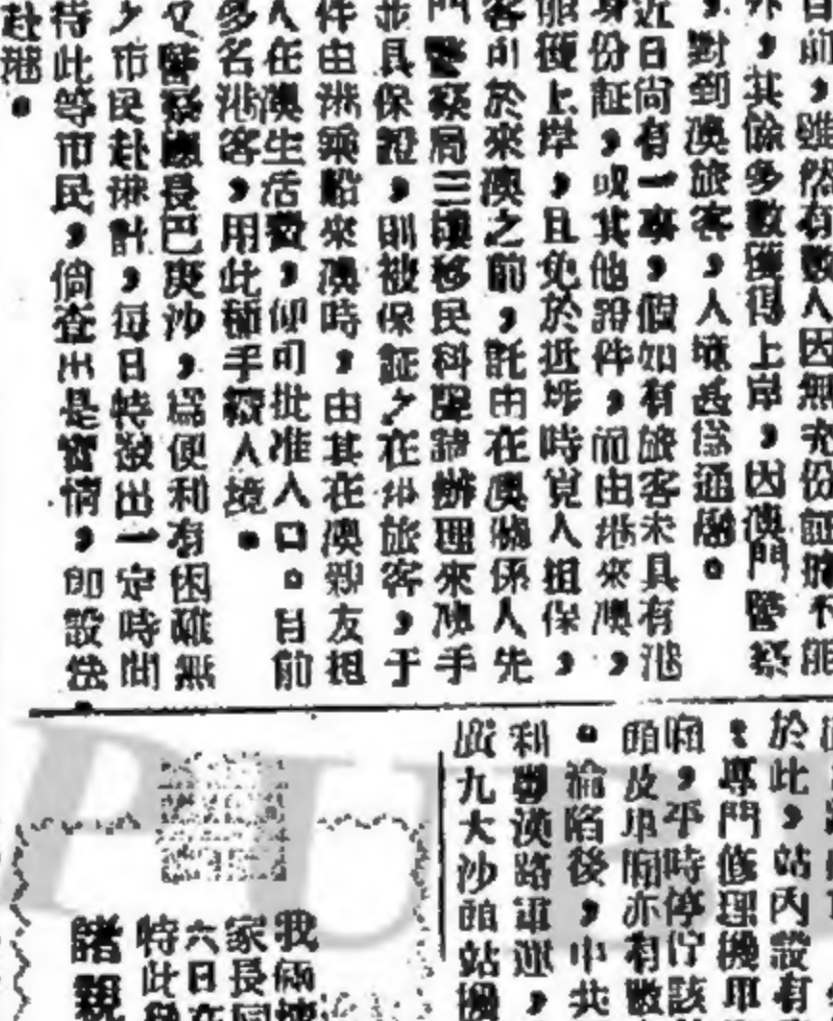 目前，雖然有數人因無充份証件不能
外，其餘多數獲得上岸，因澳門警察
，對到澳旅客，入境甚為通融。
近日尚有一事，假如有旅客未具有港
身份証，或其他證件，而由港來澳，
能獲上岸，且免於抵埗時覓人担保，
客可於來澳之前，託由在澳關係人先
門警察局三樓移民科聲請辦理來澳手
並具保證，則被保証之在港旅客，于
件由港乘船來澳時，由其在澳親友担
人在澳生活費，即可批准入口。目前
多名港客，用此種手續入境。
又警察廳長巴度沙，為便利有困難無
之市民赴港計，每日特撥出一定時間
待此等市民，倘查出是實情，即設法
赴港。
於此，站內設有
專門修理機車
廂，平時停佇該
頭及車廂亦有數
。淪陷後，中共
利粵漢路軍運，
廣九大沙頭站機
我倆
家長同
六日在
特此
諸親
PUB